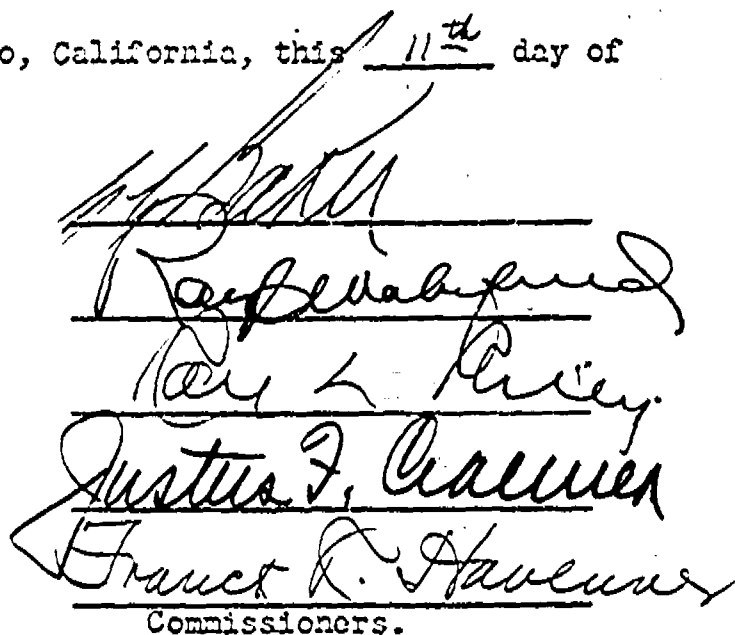 o, California, this 11th day of
Baker
Ray
Ray L. Riley.
Justus F. Craemer
Franck R. Havenner
Commissioners.